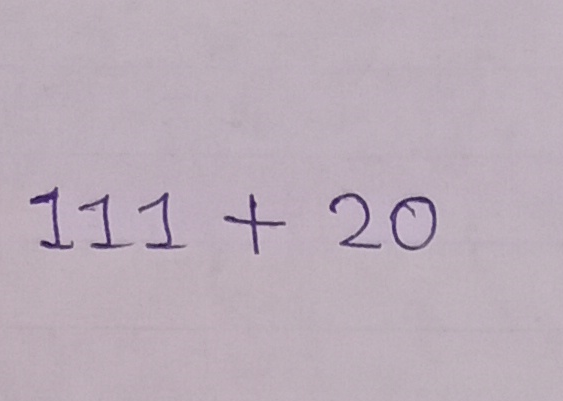 111 + 20